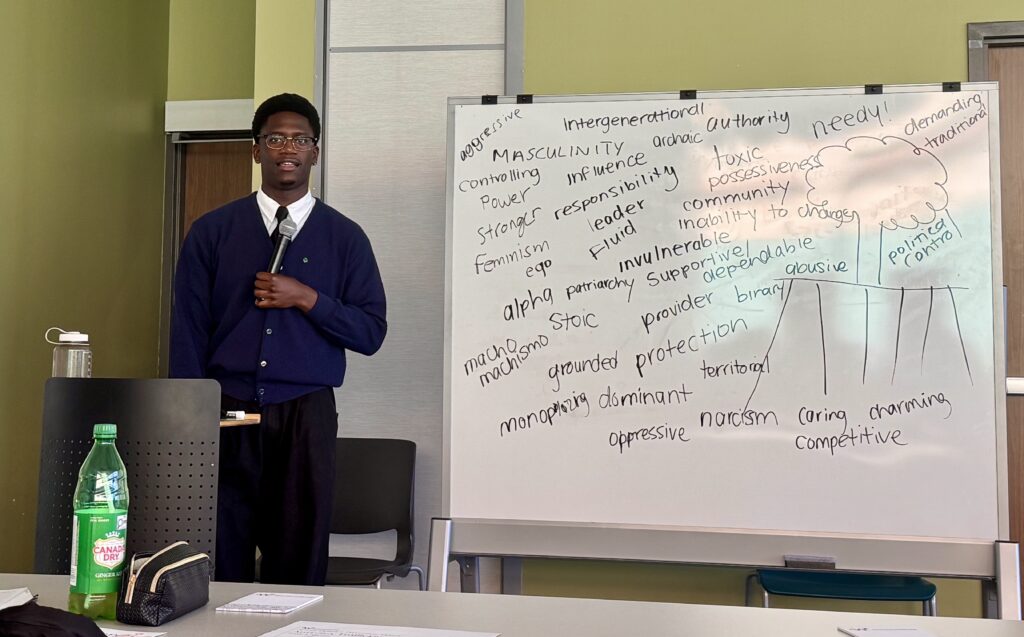 aggressive
Intergenerational
MASCULINITY
archaic
authority
needy!
demanding
traditional
controlling
influence
toxic
possessiveness
Power
responsibility
community
Stronger
leader
inability to change
Feminism
ego
Fluid
invulnerable
political
control
alpha
patriarchy
Supportive!
dependable
abusive
Stoic
provider
binary
macho
machismo
grounded
protection
territorial
monopolizing
dominant
narcism
caring
charming
oppressive
competitive
CANADA
DRY
GINGER ALE